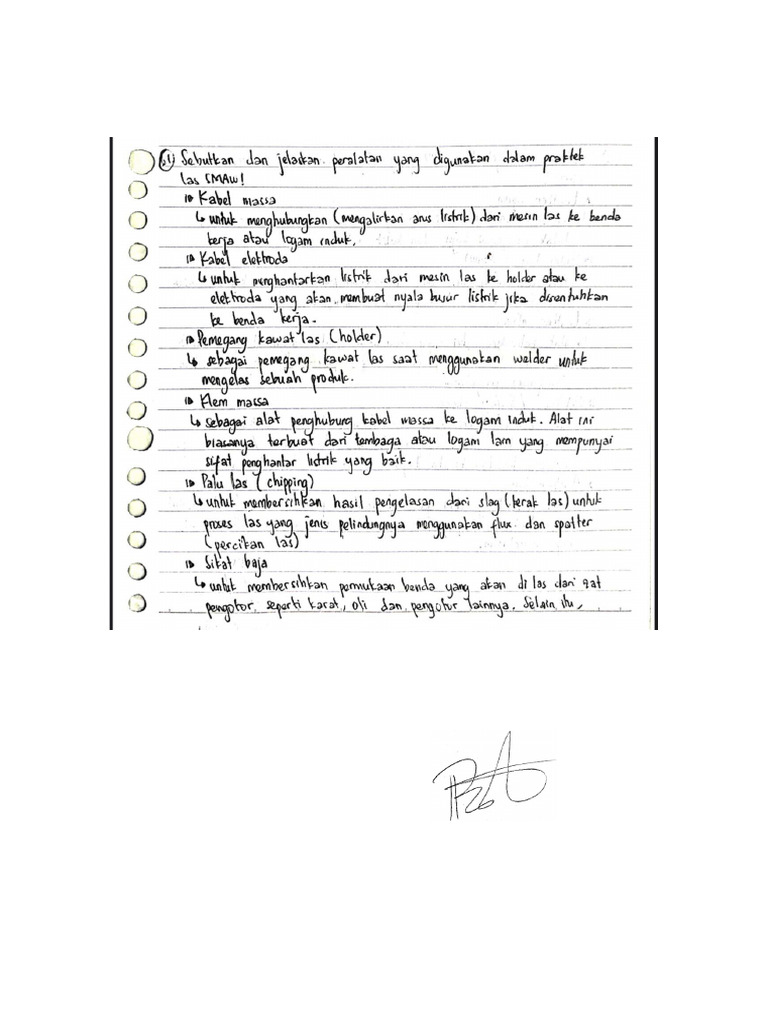 61) Sebutkan dan jelaskan peralatan yang digunakan dalam praktek
las SMAW!
Kabel massa
↳ untuk menghubungkan (mengalirkan arus listrik) dari mesin las ke benda
kerja atau logam induk.
Kabel elektroda
↳ untuk menghantarkan listrik dari mesin las ke holder atau ke
elektroda yang akan membuat nyala busur listrik jika disentuhkan
ke benda kerja.
Pemegang kawat las (holder)
↳ sebagai pemegang kawat las saat menggunakan welder untuk
mengelas sebuah produk.
Klem massa
↳ sebagai alat penghubung kabel massa ke logam induk. Alat ini
biasanya terbuat dari tembaga atau logam lain yang mempunyai
sifat penghantar listrik yang baik.
Palu las (chipping)
↳ untuk membersihkan hasil pengelasan dari slag (kerak las) untuk
proses las yang jenis pelindungnya menggunakan flux dan spatter
(percikan las)
Sikat baja
↳ untuk membersihkan permukaan benda yang akan di las dari zat
pengotor seperti karat, oli dan pengotor lainnya. Selain itu,